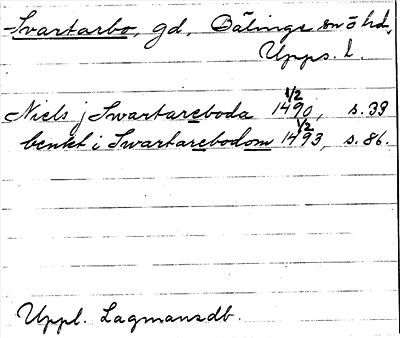 Svartarbo, gd, Bälings sn o hd,
Upps. l.
Niels j Swartareboda 1490, 1/2 s. 39
benkt i Swartarebodom 1493, 1/2 s. 86.
Uppl. Lagmansdb.